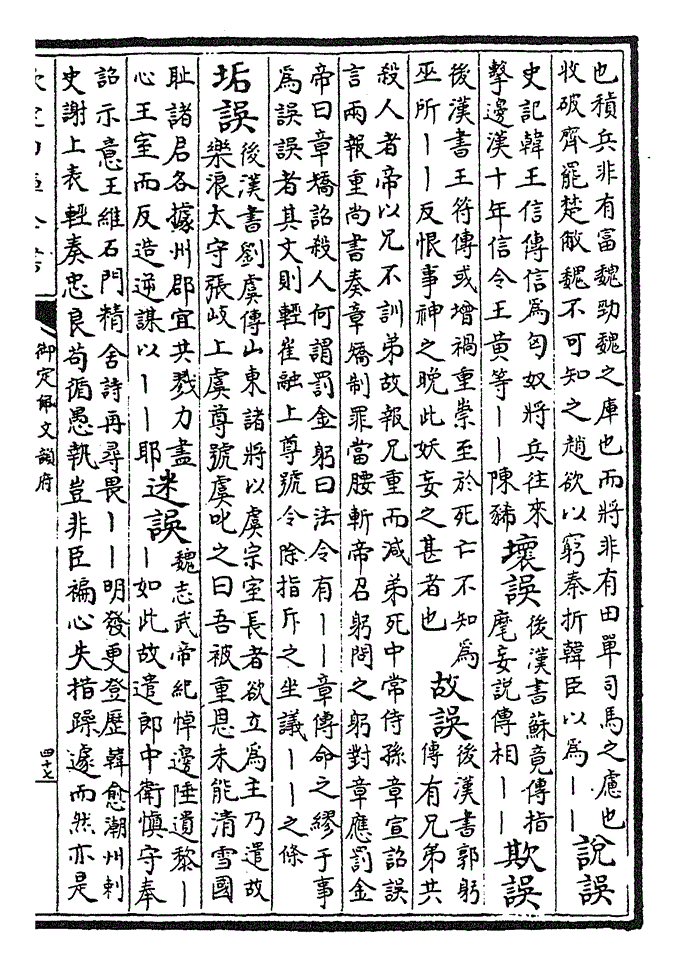 也積兵非有富魏勁魏之庫也而將非有田單司馬之慮也
收破齊罷楚敝魏不可知之趙欲以窮秦折韓臣以為丨丨
說誤
史記韓王信傳信為匈奴將兵往來
擊邊漢十年信令王黃等丨丨陳豨
壞誤
後漢書蘇竟傳指
麾妄說傳相丨丨
欺誤
後漢書王符傳或增禍重祟至於死亡不知為
巫所丨丨反恨事神之晚此妖妄之甚者也
故誤
後漢書郭躬
傳有兄弟共
殺人者帝以兄不訓弟故報兄重而減弟死中常侍孫章宣詔誤
言兩報重尚書奏章矯制罪當腰斬帝召躬問之躬對章應罰金
帝曰章矯詔殺人何謂罰金躬曰法令有丨丨章傳命之繆于事
為誤誤者其文則輕崔融上尊號令除指斥之坐議丨丨之條
垢誤
後漢書劉虞傳山東諸將以虞宗室長者欲立為主乃遣故
樂浪太守張岐上虞尊號虞叱之曰吾被重恩未能清雪國
恥諸君各據州郡宜共戮力盡
心王室而反造逆謀以丨丨耶
迷誤
魏志武帝紀悼邊陲遺黎丨
丨如此故遣郎中衛慎守奉
詔示意王維石門精舍詩再尋畏丨丨明發更登歷韓愈潮州刺
史謝上表輕奏忠良苟循愚執豈非臣褊心失措躁遽而然亦是
御定佩文韻府
四十七